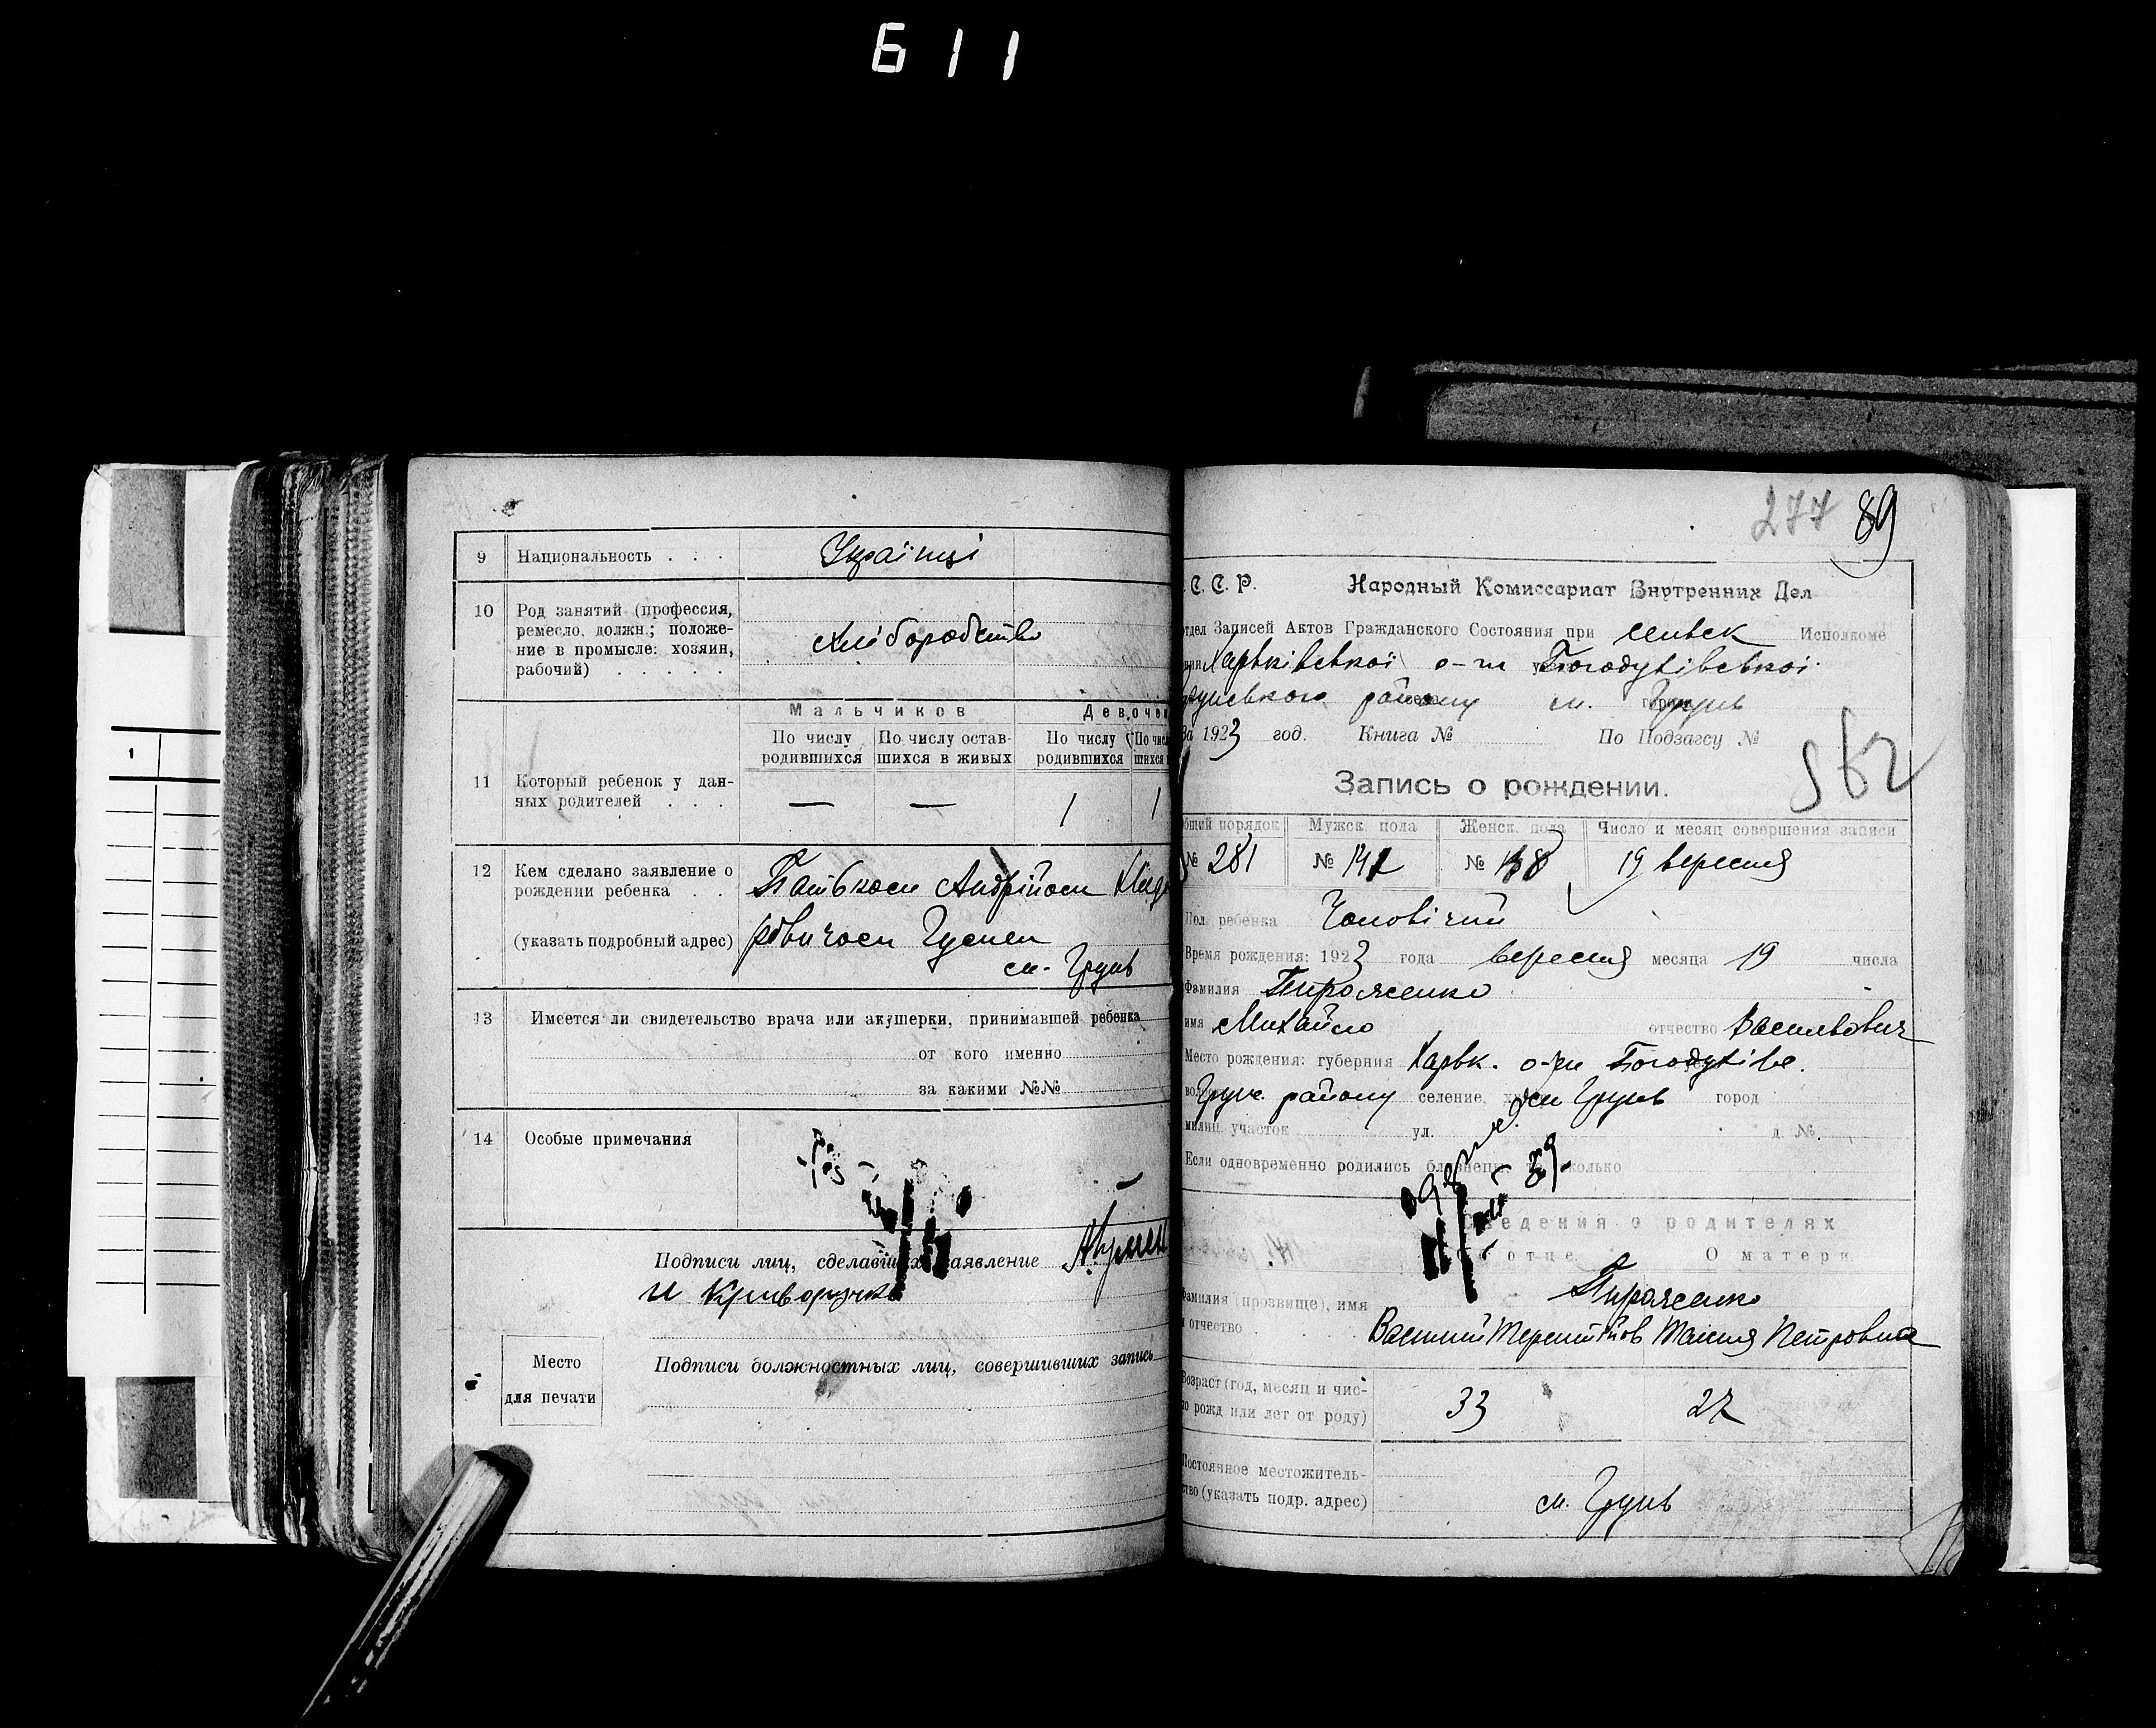 611
9 Национальность . . . Українці
10 Род занятий (профессия,
ремесло, должн.; положе-
ние в промысле: хозяин,
рабочий) . . . . .
хліборобство
Мальчиков Девочек
По числу родившихся По числу остав-шихся в живых По числу родившихся
11 Который ребенок у дан-
ных родителей . . .
— — 1 1
12 Кем сделано заявление о
рождении ребенка . .
(указать подробный адрес)
Батьком Андрійом
см. Грунь
13 Имеется ли свидетельство врача или акушерки, принимавшей ребенка
от кого именно
за какими №№
14 Особые примечания
Подписи лиц, сделавших заявление
и Криворучко
Место
для печати
Подписи должностных лиц, совершивших запись
277 89
С. С. Р. Народный Комиссариат Внутренних Дел
отдел Записей Актов Гражданского Состояния при Исполкоме
Харьківської о-ги Богодухівської
району см. Грунь
За 1923 год. Книга № По Подзагсу №
562
Запись о рождении.
общий порядок Мужск. пола Женск. пола Число и месяц совершения записи
№ 281 № 142 № 138 19 вересня
Пол ребенка Чоловічий
Время рождения: 1923 года вересня месяца 19 числа
Фамилия Пироженко
имя Михайло отчество Васильович
Место рождения: губерния Харьк. о-ги Богодухівс.
Грунс. району селение, см Грунь город
милиц. участок ул. д. №.
Если одновременно родились близнецы, то сколько
Сведения о родителях
О отце О матери
Фамилия (прозвище), имя
и отчество . . . .
Пироженко
Василий Терентійов Мария Петровна
Возраст (год, месяц и чис-
ло рожд. или лет от роду)
33 27
Постоянное местожитель-
ство (указать подр. адрес)
см. Грунь